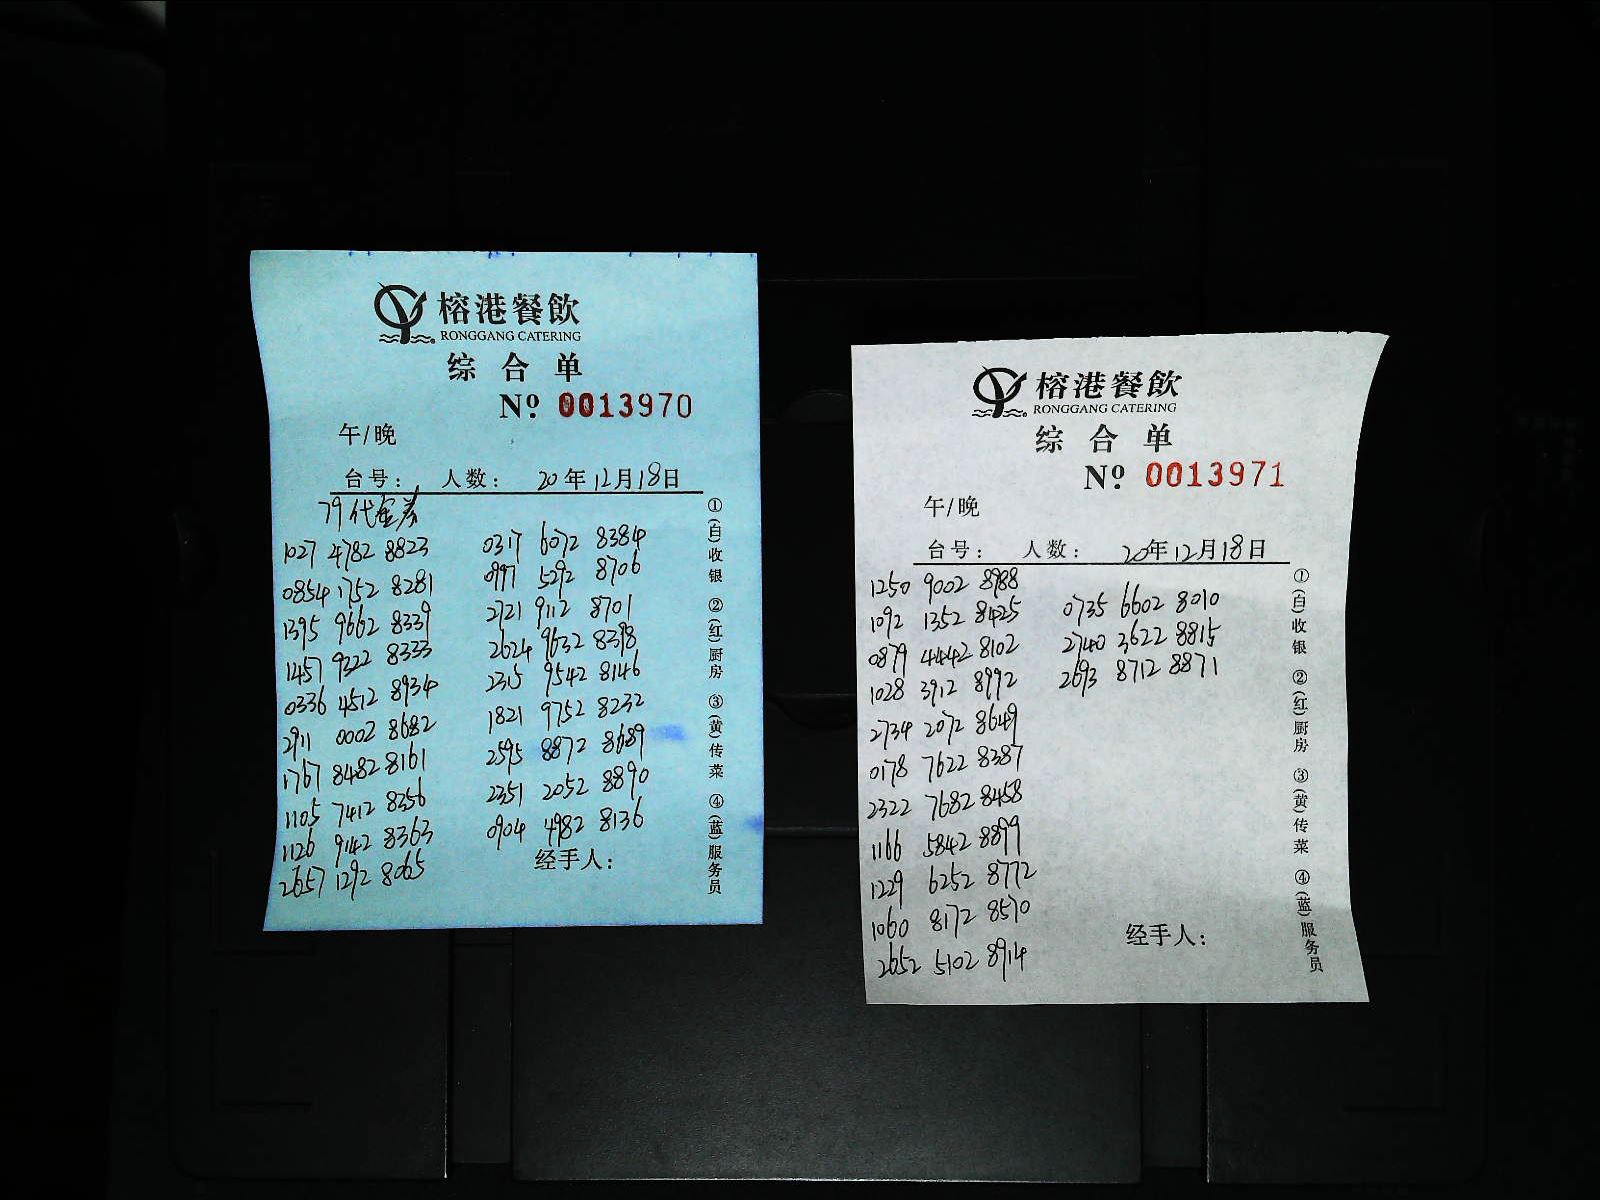 榕港餐飲
RONGGANG CATERING
综合单
Nº 0013970
午/晚
台号： 人数： 20年12月18日
79代金券
1027 4782 8823
0854 1752 8281
1395 9662 8339
1457 9322 8333
0336 4512 8934
2911 0002 8682
1767 8482 8161
1105 7412 8356
1126 9142 8363
2657 1292 8065
0317 6072 8384
0997 5292 8706
2721 9112 8701
2624 9632 8398
2315 9542 8146
1821 9752 8232
2595 8872 8689
2351 2052 8890
0904 4982 8136
经手人：
①(白)收银 ②(红)厨房 ③(黄)传菜 ④(蓝)服务员
榕港餐飲
RONGGANG CATERING
综合单
Nº 0013971
午/晚
台号： 人数： 20年12月18日
1250 9002 8988
1092 1352 8425
0879 4442 8102
1028 3912 8992
2734 2072 8649
0178 7622 8387
2322 7682 8458
1166 5842 8899
1229 6252 8772
1060 8172 8570
2652 5102 8914
0735 6602 8010
2740 3622 8815
2693 8712 8871
经手人：
①(白)收银 ②(红)厨房 ③(黄)传菜 ④(蓝)服务员